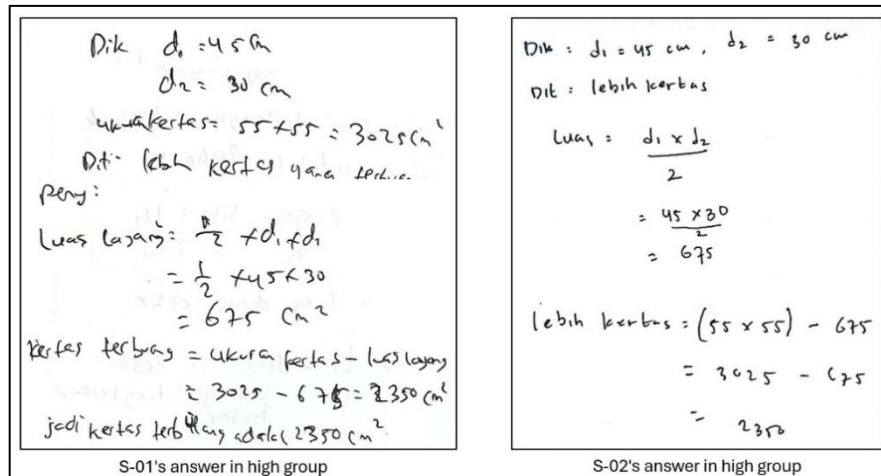 Dik d₁ = 45 cm
d₂ = 30 cm
ukuran kertas = 55 × 55 = 3025 cm²
Dit: lebih kertas yang
peny:
Luas layang² = 1/2 × d₁ × d₁
= 1/2 × 45 × 30
= 675 cm²
kertas terbuang = ukuran kertas - luas layang
= 3025 - 675 = 2350 cm²
jadi kertas terbuang adalah 2350 cm².
S-01's answer in high group
Dik : d₁ = 45 cm, d₂ = 30 cm
Dit : lebih kertas
Luas = d₁ × d₂
2
= 45 × 30
2
= 675
lebih kertas = (55 × 55) - 675
= 3025 - 675
= 2350
S-02's answer in high group